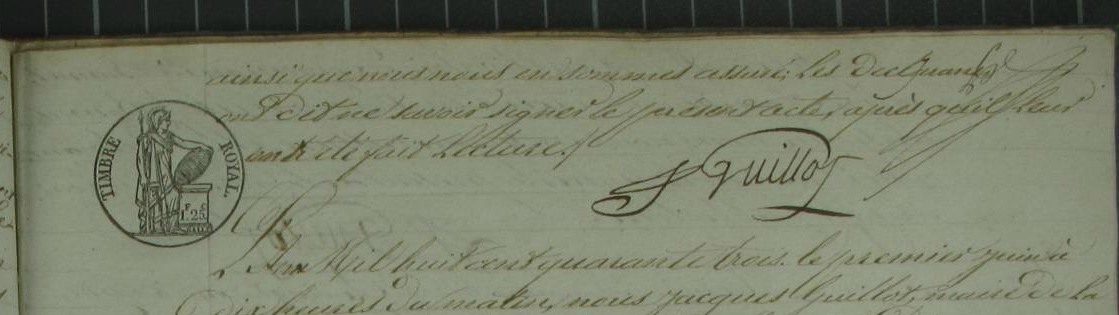 ainsi que nous nous en sommes assuré; les declarans
ont dit ne savoir signer le présent acte, après qu'il leur
en ete fait lecture./.
TIMBRE ROYAL.
F C
1.25
J Guillot
L'an Mil huit cent quarante trois. le premier juin à
Dix heures du matin, nous Jacques Guillot, maire de la